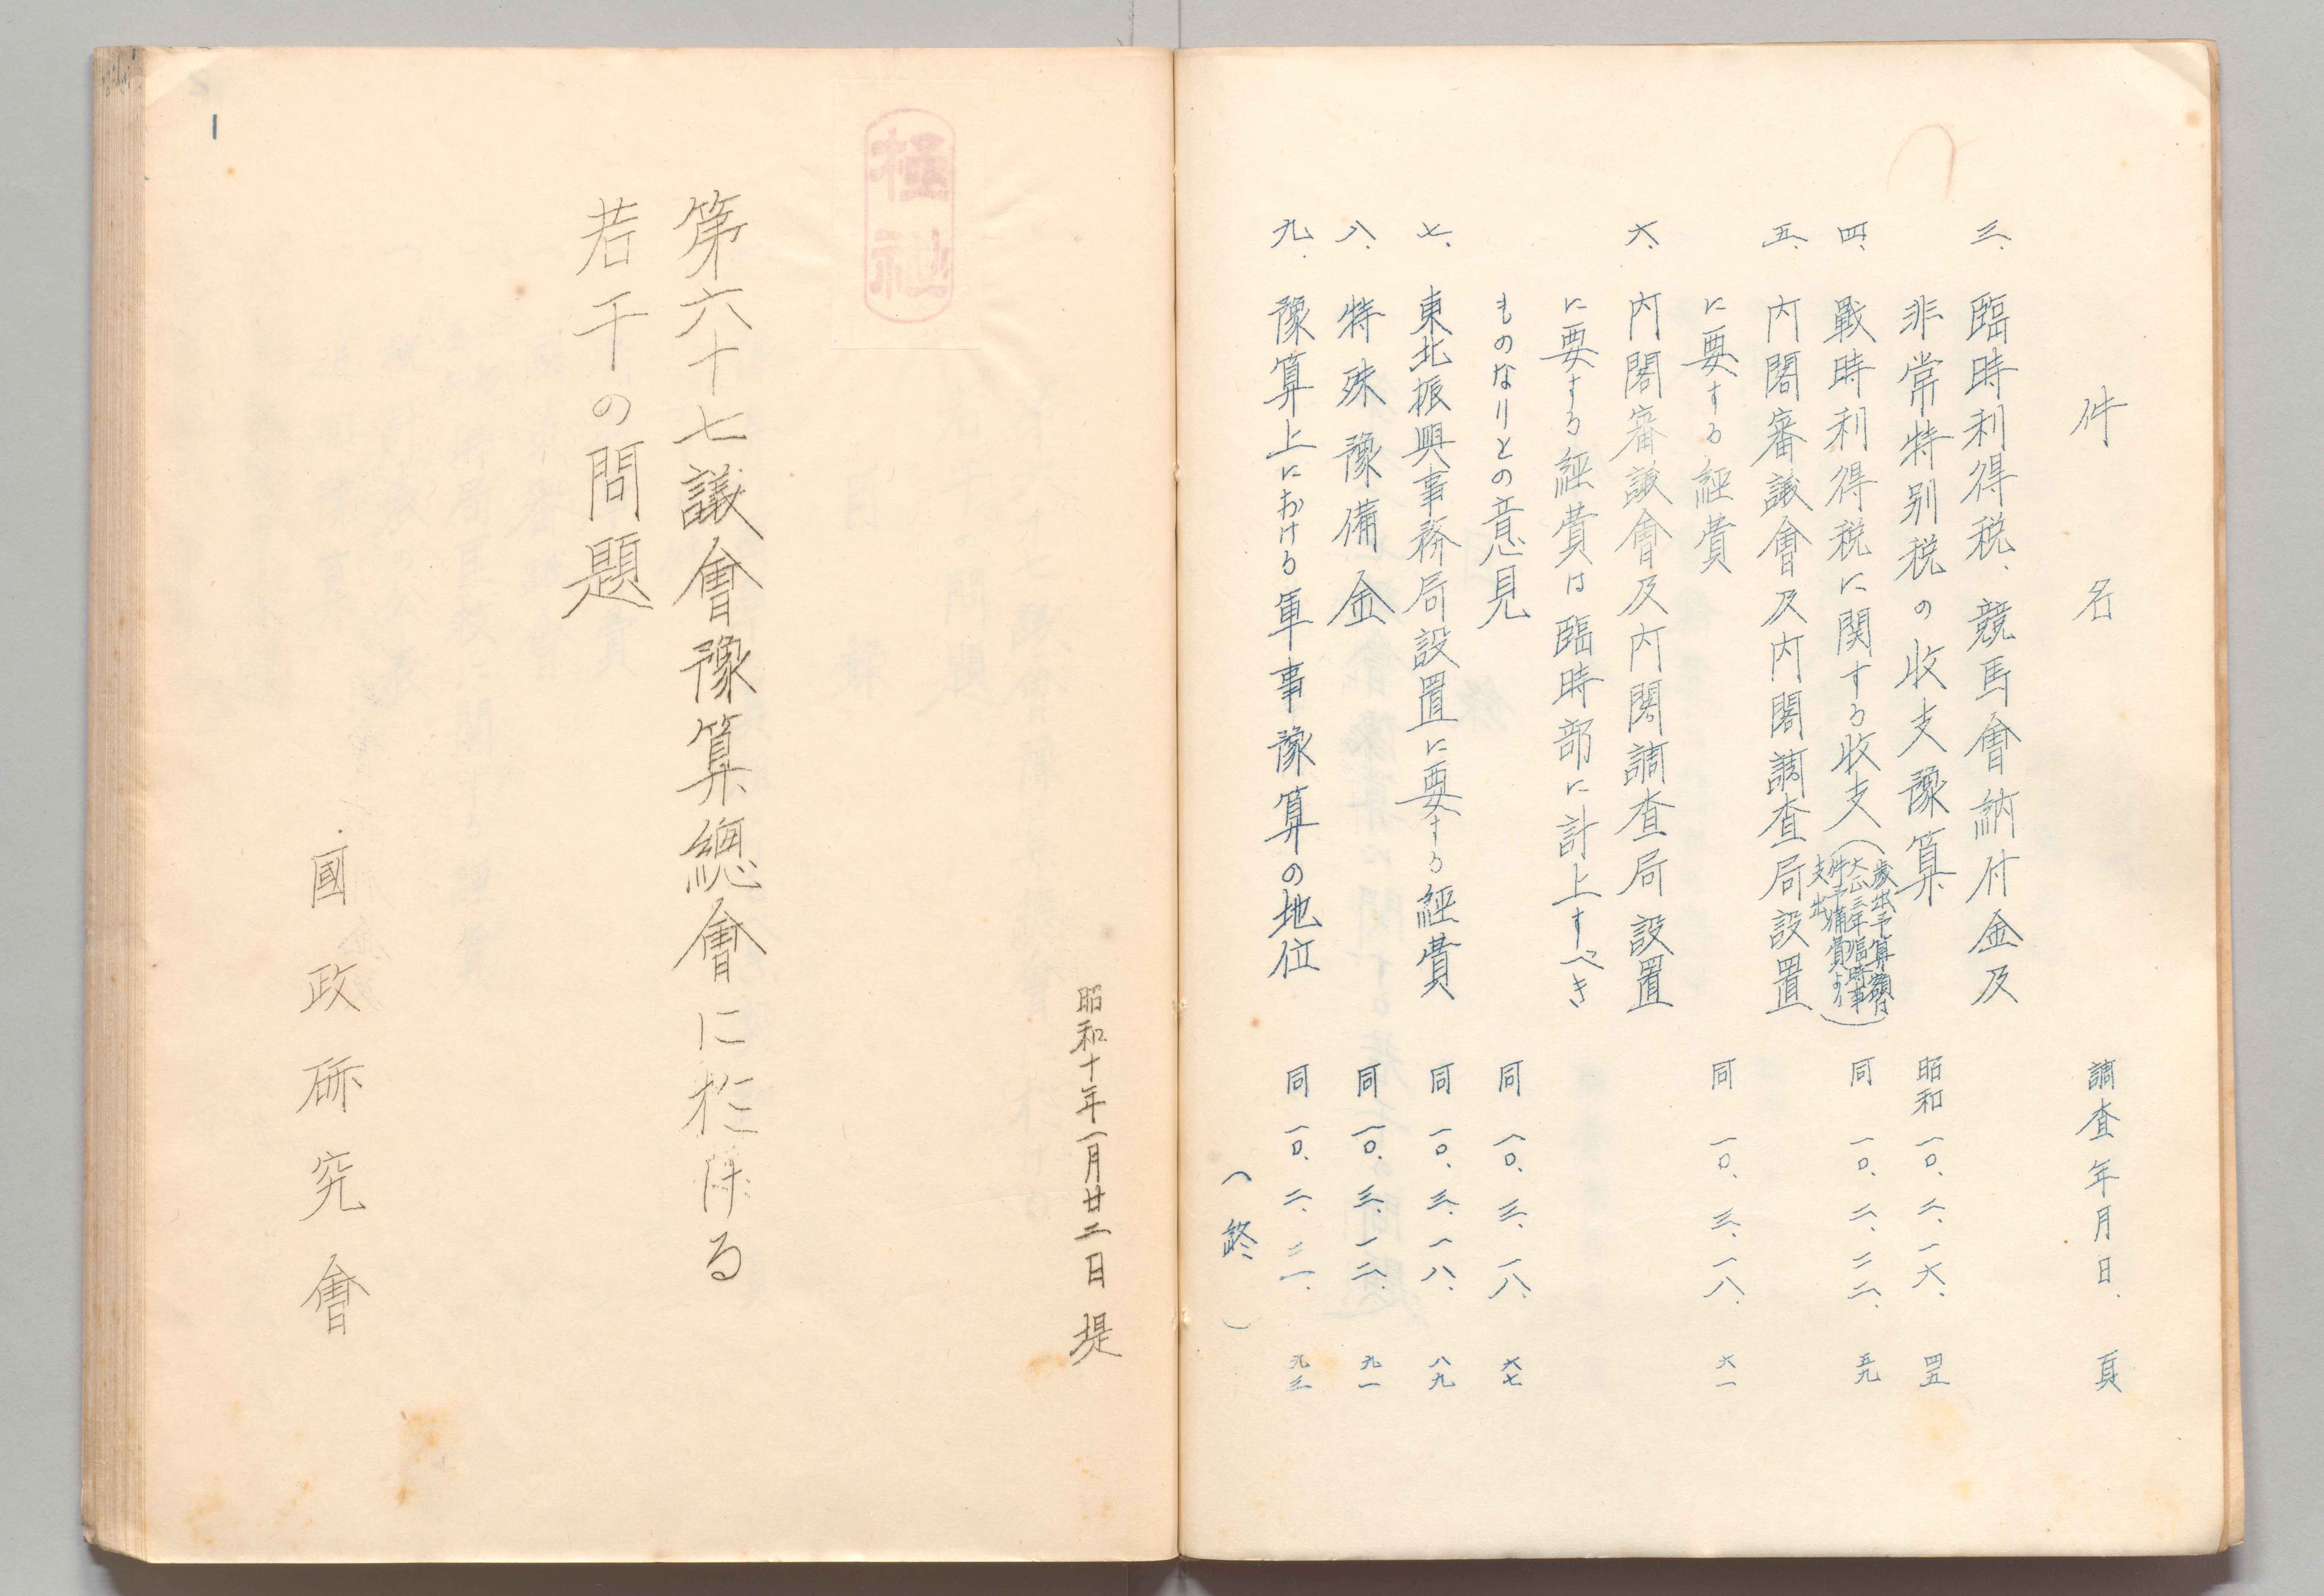 件名 調査年月日. 頁
三. 臨時利得税、競馬會納付金及
非常特別税の收支豫算 昭和一〇、二、一六、 四五
四. 戰時利得税に関する收支(歳出予算額は大正三年臨時事件予備費より支出) 同 一〇、二、二二、 五九
五. 内閣審議會及内閣調査局設置
に要する経費 同 一〇、三、一八、 六一
六. 内閣審議會及内閣調査局設置
に要する経費は臨時部に計上すべき
ものなりとの意見 同 一〇、三、一八、 六七
七. 東北振興事務局設置に要する経費 同 一〇、三、一八、 八九
八. 特殊豫備金 同 一〇、三、一二、 九一
九. 豫算上における軍事豫算の地位 同 一〇、二、二一、 九三
(終)
昭和十年一月廿二日 堤
極祕
第六十七議會豫算總會に於ける
若干の問題
國政研究會
1